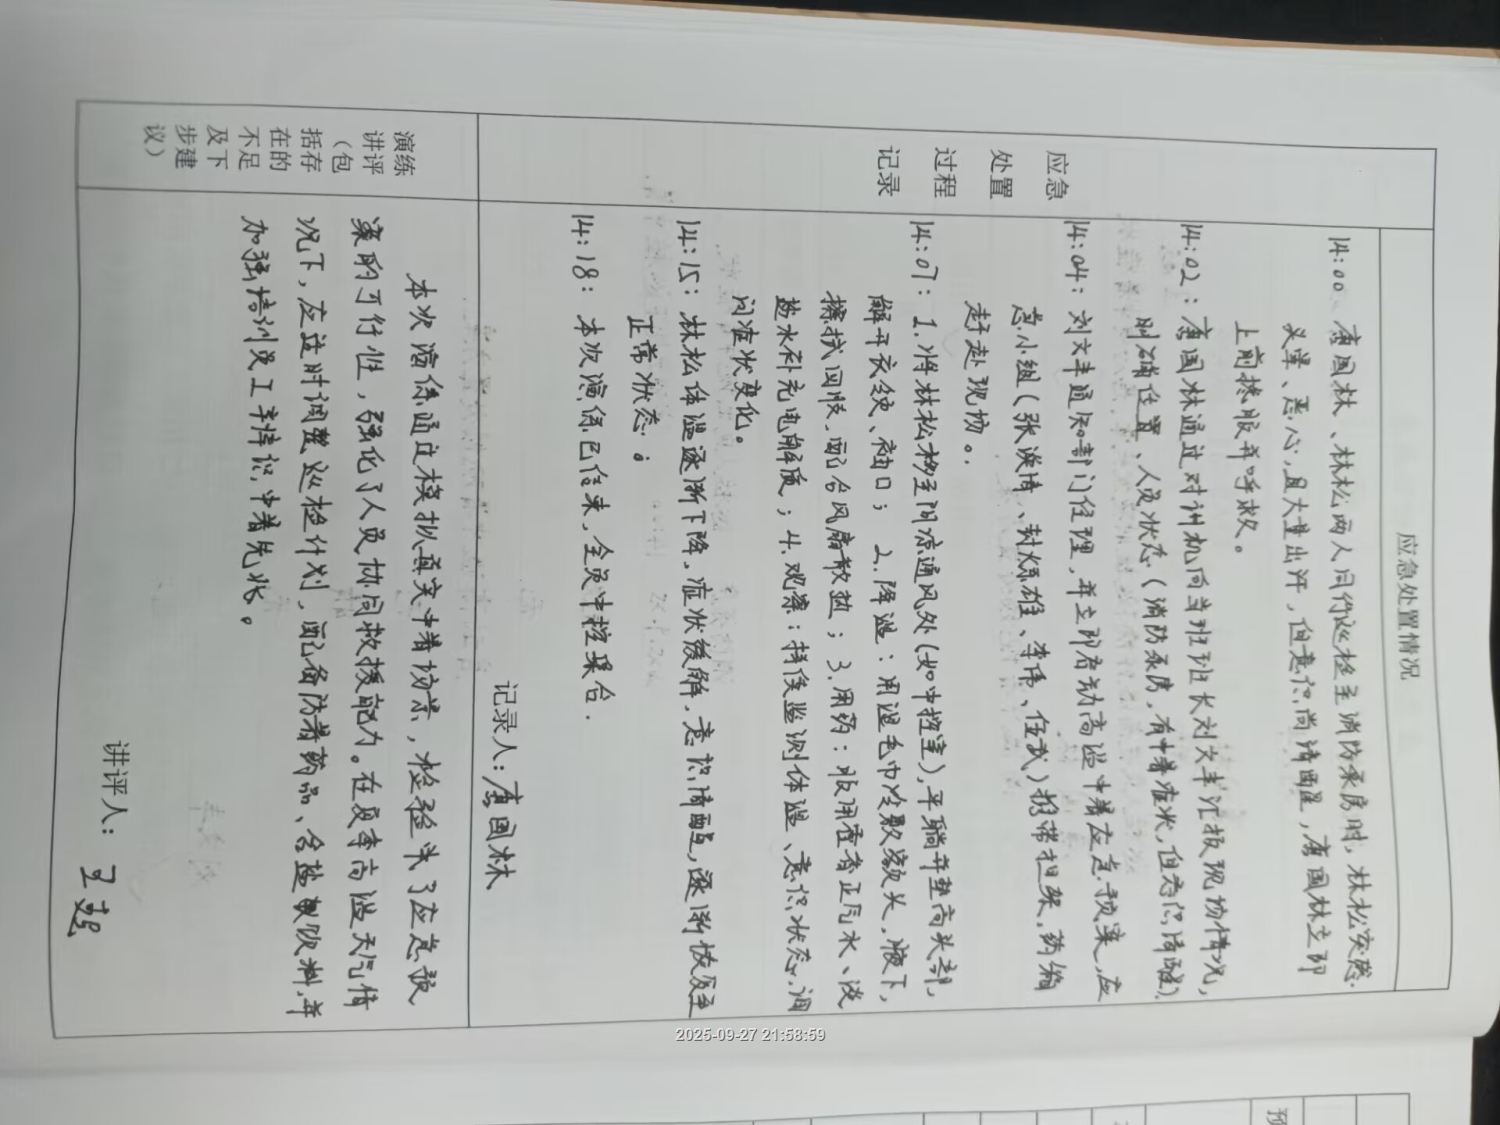 应急处置情况
应急
处置
过程
记录
14:00 唐国林、林松两人同行巡检至消防泵房时，林松突感
头晕、恶心，且大量出汗，但意识尚清醒，唐国林立即
上前搀服并呼救。
14:02：唐国林通过对讲机向当班班长刘文丰汇报现场情况，
明确位置、人员状态（消防泵房，有中暑症状，但意识清醒）.
14:04：刘文丰通知部门经理，并立即启动高温中暑应急预案，应
急小组（张   、封   雄、李伟、任武）携带担架，药箱
赶赴现场。
14:07：1.将林松移至阴凉通风处（如中控室），平躺并垫高头部，
解开衣领、袖口；2.降温：用湿毛巾冷敷额头，腋下，
擦拭四肢，配合风扇散热；3.用药：服用藿香正气水、淡
盐水补充电解质；4.观察：持续监测体温、意识状态，询
问症状变化。
14:15：林松体温逐渐下降，症状缓解，意识清醒，逐渐恢复至
正常状态。
14:18：本次演练已结束，全员中控集合.
记录人：唐国林
演练
讲评
（包
括存
在的
不足
及下
步建
议）
本次演练通过模拟真实中暑场景，检验了应急预
案的可行性，强化了人员协同救援能力。在夏季高温天气情
况下，应适时调整巡检计划，配备防暑药品、含盐饮料，并
加强培训员工辩识中暑先兆。
讲评人：王
2025-09-27 21:58:59
预